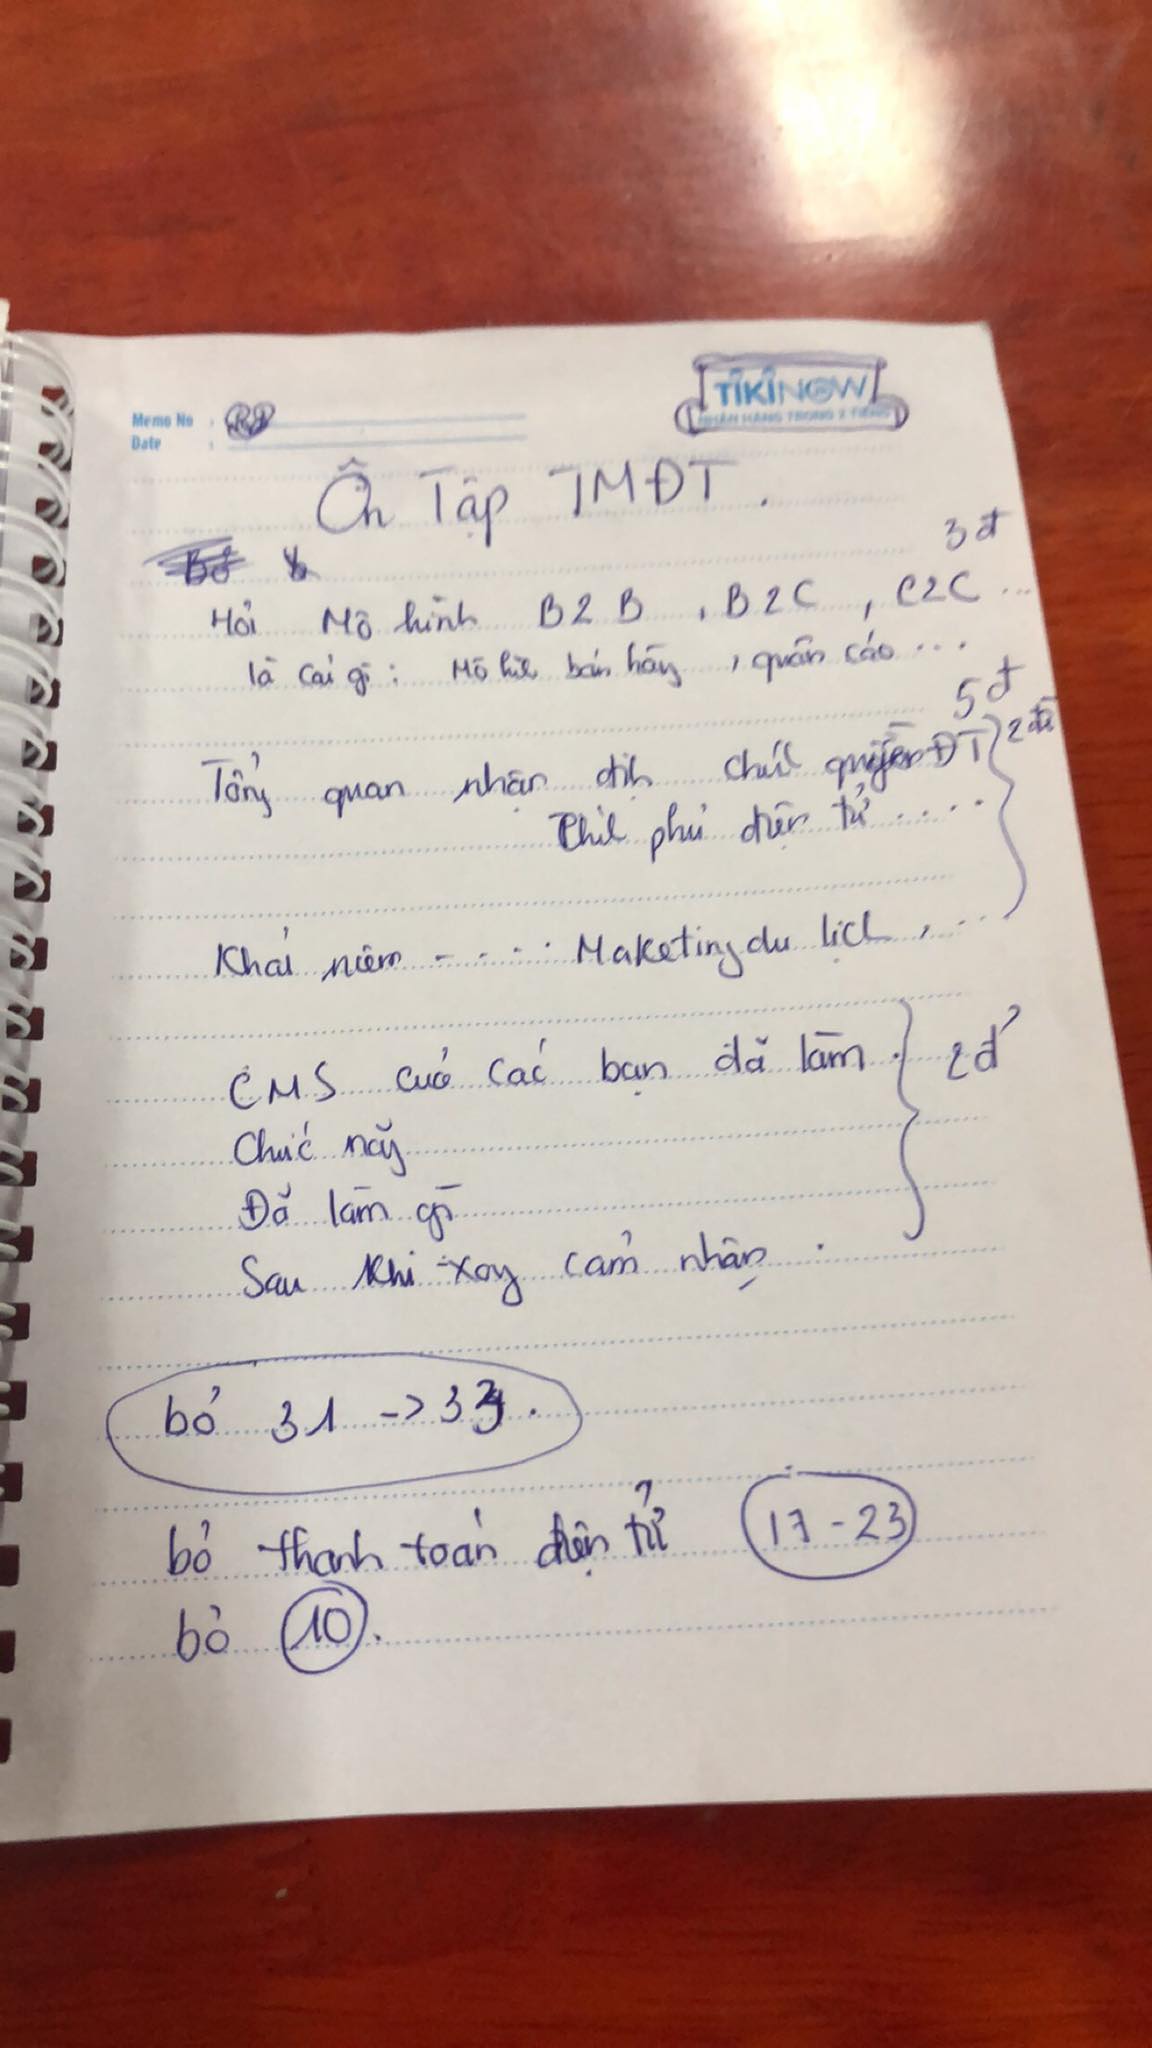 TIKINOW
NHẬN HÀNG TRONG 2 TIẾNG
Memo No :
Date :
Ôn Tập TMĐT.
3đ
Hỏi Mô hình B2B, B2C, C2C ...
là cái gì: Mô hình bán hàng, quản cáo ...
5đ
Tổng quan nhận định chữ quyền ĐT
phủ điện tử ....
Khái niệm - ... Maketing du lịch, ...
CMS của các bạn đã làm. 2đ
Chức năng
Đã làm gì
Sau khi xay cảm nhận.
bỏ 31 -> 33.
bỏ thanh toán điện tử 17 - 23
bỏ 10.